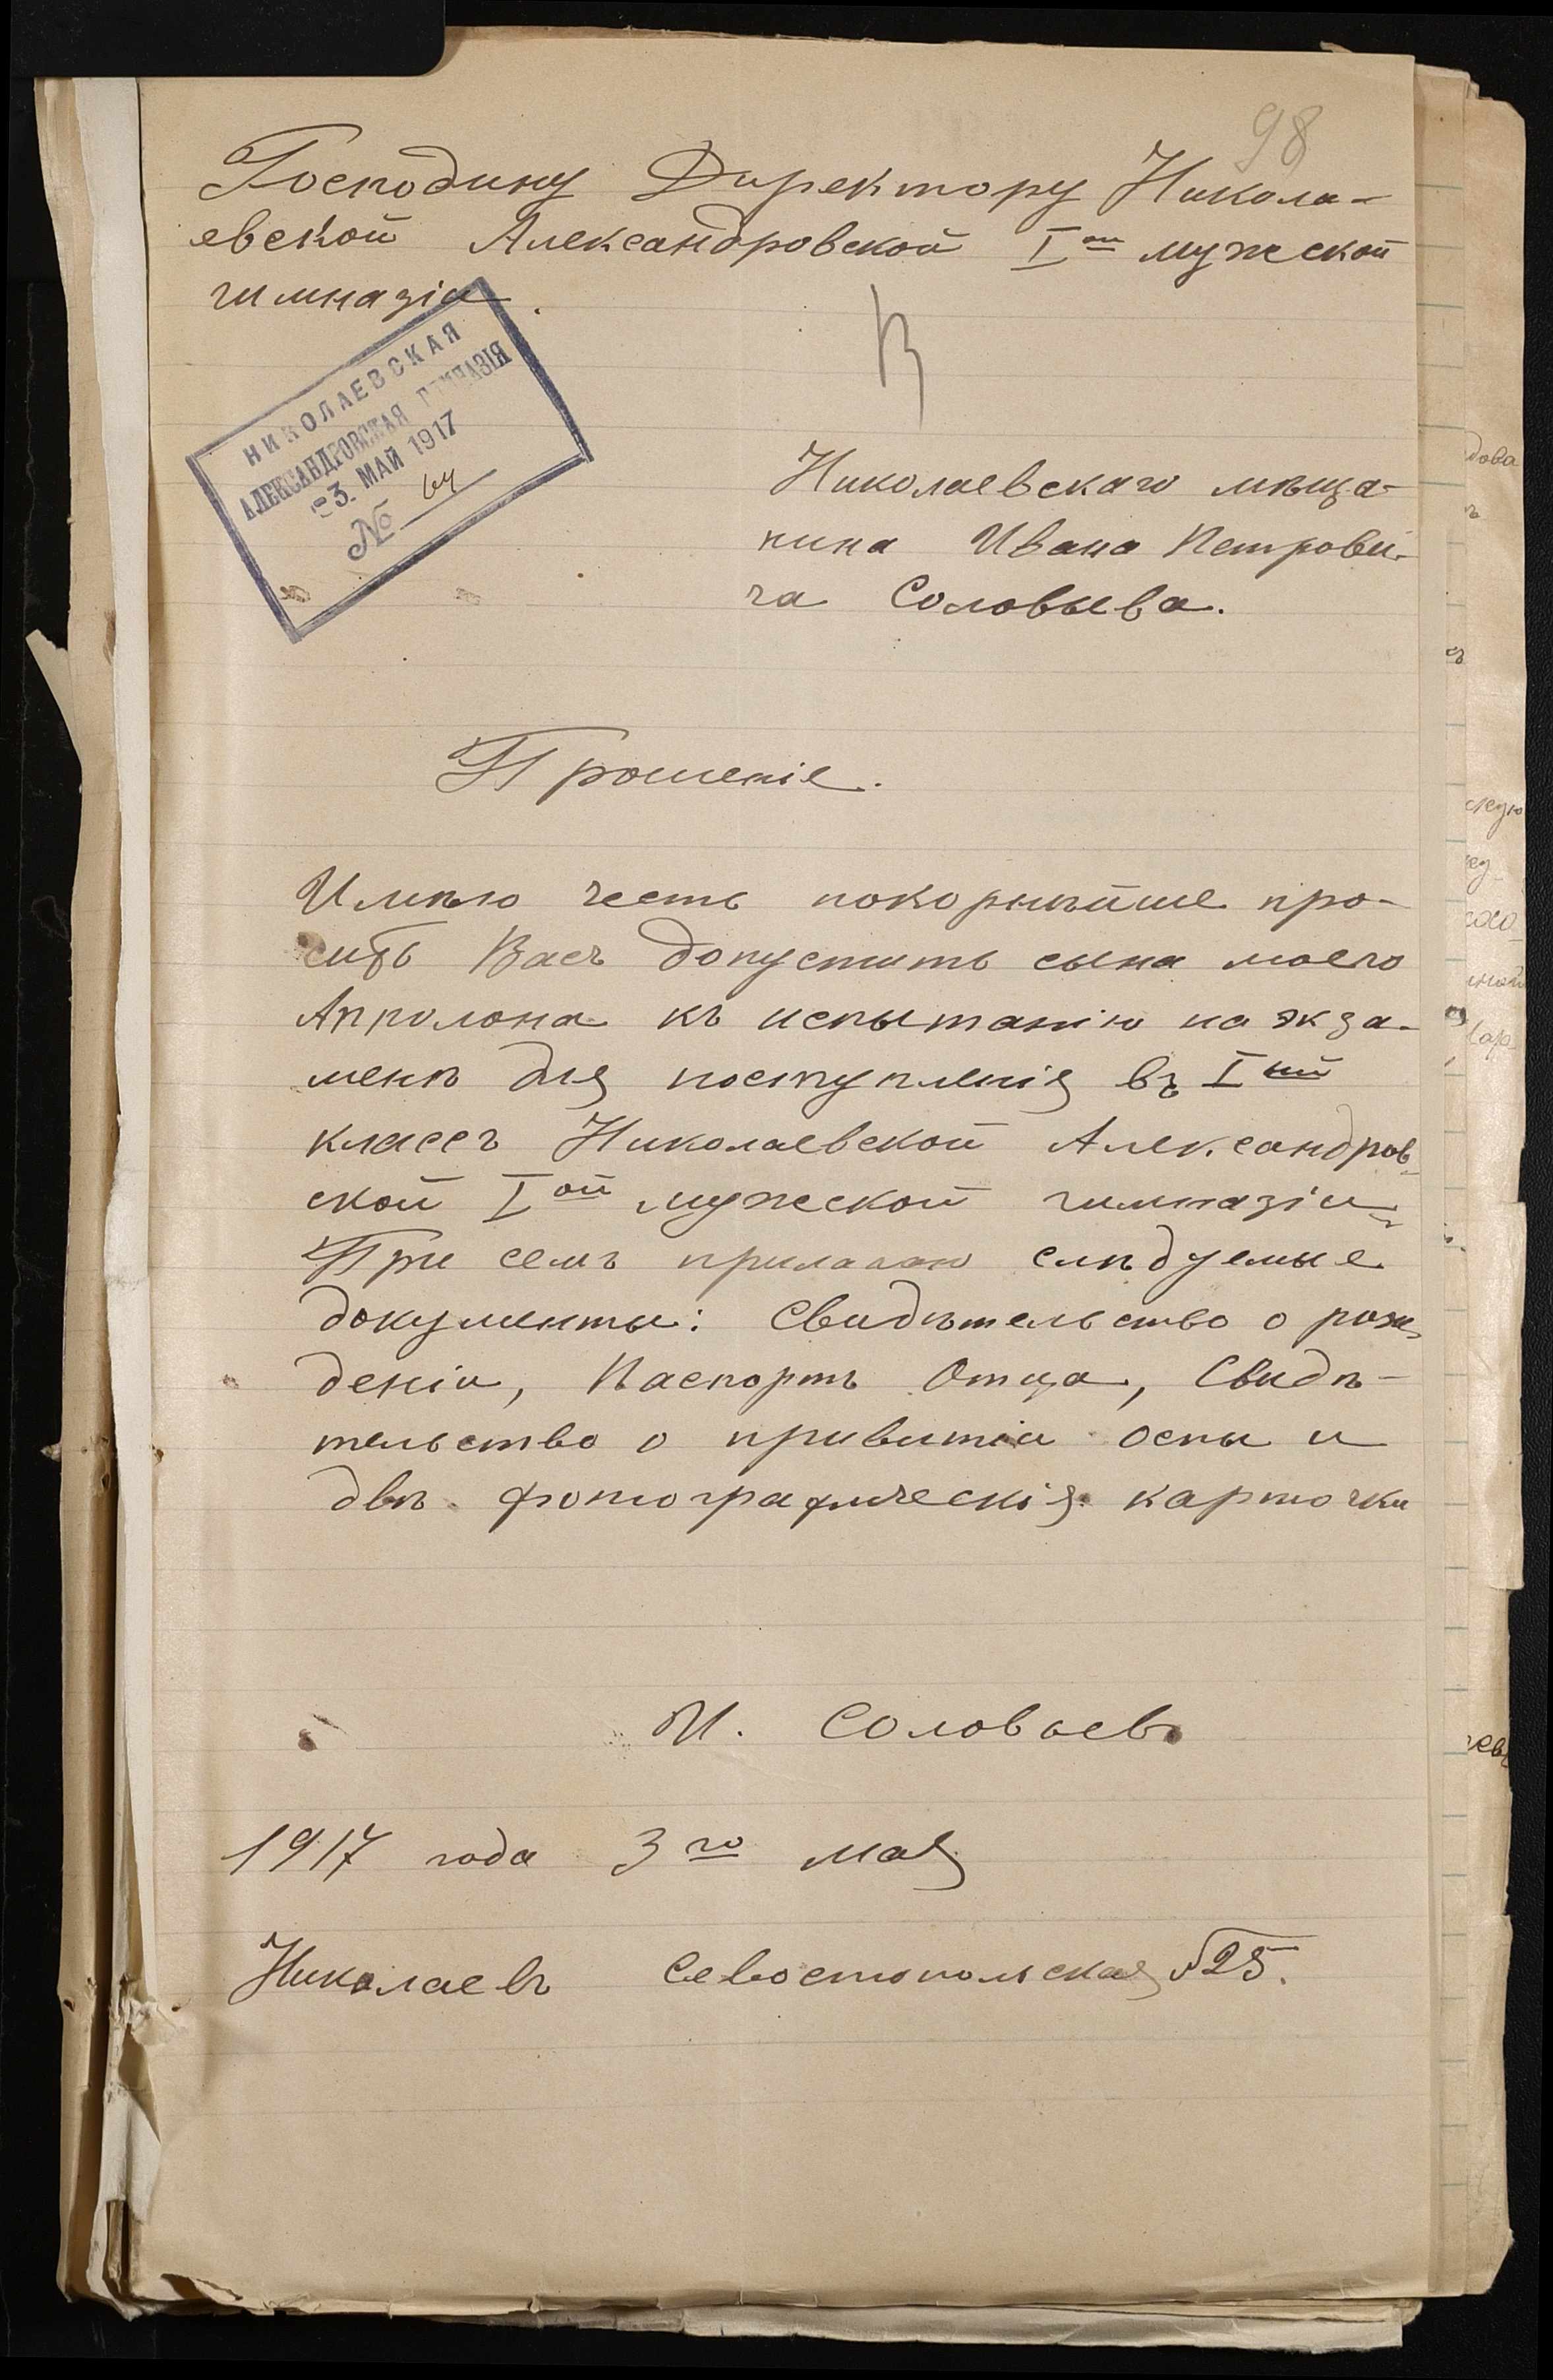 98
Господину Директору Никола-
евской Александровской I ой мужской
гимназіи.
НИКОЛАЕВСКАЯ
АЛЕКСАНДРОВСКАЯ ГИМНАЗІЯ
3. МАЙ 1917
№
Николаевскаго мѣща-
нина Ивана Петрови-
ча Соловьева.
Прошеніе.
Имѣю честь покорнѣйше про-
сить Васъ допустить сына моего
Апполона къ испытанію на экза-
менѣ для поступленія въ I ый
классъ Николаевской Александров-
ской I ой мужской гимназіи
При семъ прилагаю слѣдуемые
документы: Свидѣтельство о рож-
деніи, Паспортъ Отца, Свидѣ-
тельство о привитіи оспы и
двѣ фотографическія карточки
И. Соловьев
1917 года 3 го мая
Николаевъ Севостопольская №25.